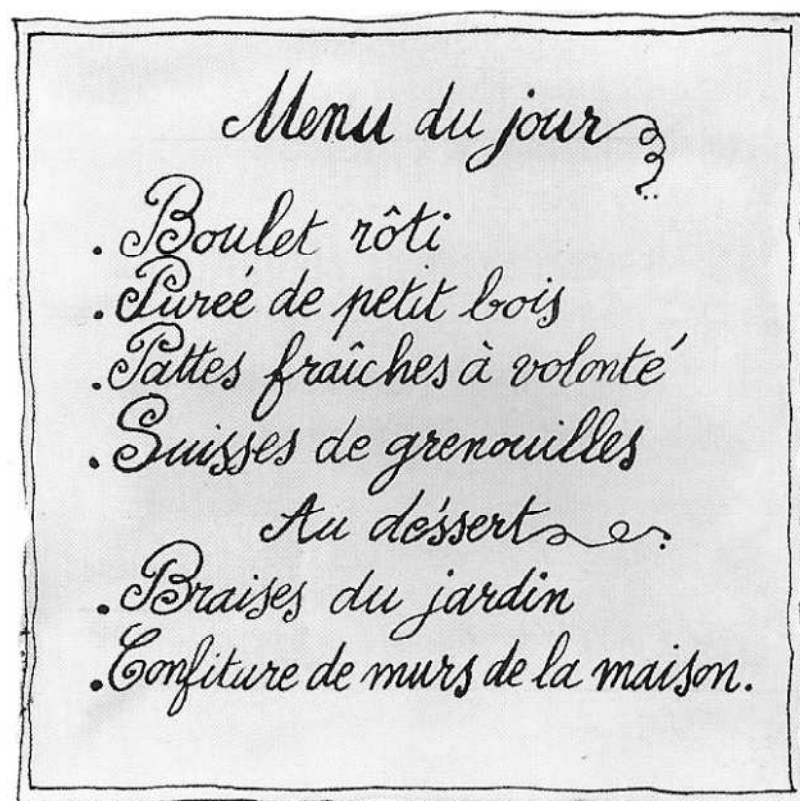 Menu du jour
. Boulet rôti
. Purée de petit bois
. Pattes fraîches à volonté
. Suisses de grenouilles
Au déssert
. Braises du jardin
. Confiture de murs de la maison.